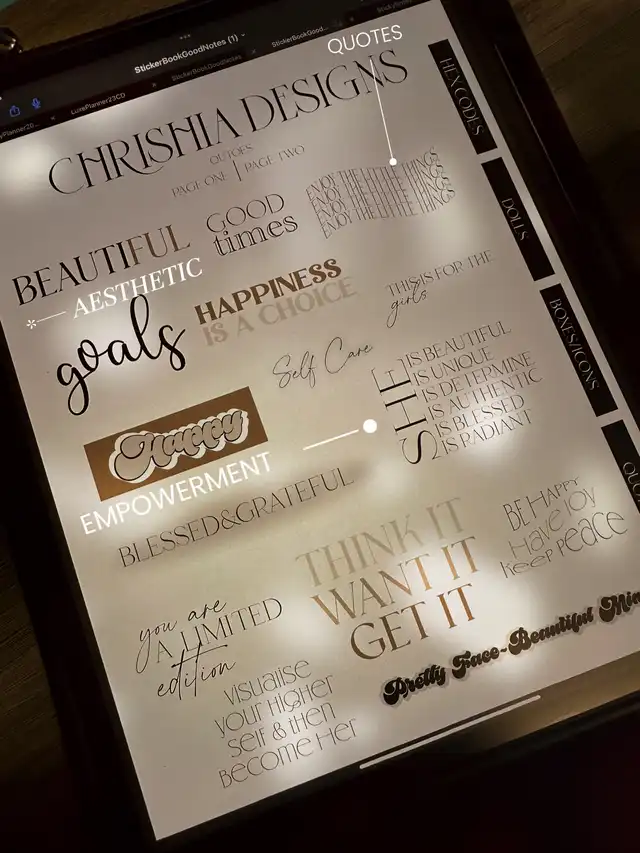 StickerBookGoodNotes (1)
StickerBookGoodNotes
StickerBookGood...
LuxePlanner23CD
QUOTES
CHRISHIA DESIGNS
QUTOES
PAGE ONE | PAGE TWO
HEX CODES
DOLLS
BOXES/ICONS
BEAUTIFUL
GOOD
times
ENJOY THE LITTLE THINGS
ENJOY THE LITTLE THINGS
ENJOY THE LITTLE THINGS
ENJOY THE LITTLE THINGS
ENJOY THE LITTLE THINGS
* AESTHETIC
goals
HAPPINESS
IS A CHOICE
THIS IS FOR THE
girls
Self Care
SHE
IS BEAUTIFUL
IS UNIQUE
IS DETERMINE
IS AUTHENTIC
IS BLESSED
IS RADIANT
Happy
EMPOWERMENT
BLESSED&GRATEFUL
THINK IT
WANT IT
GET IT
BE HAPPY
HAVE JOY
KEEP PEACE
you are
A LIMITED
edition
Pretty Face-Beautiful
visualise
your Higher
self & then
Become Her